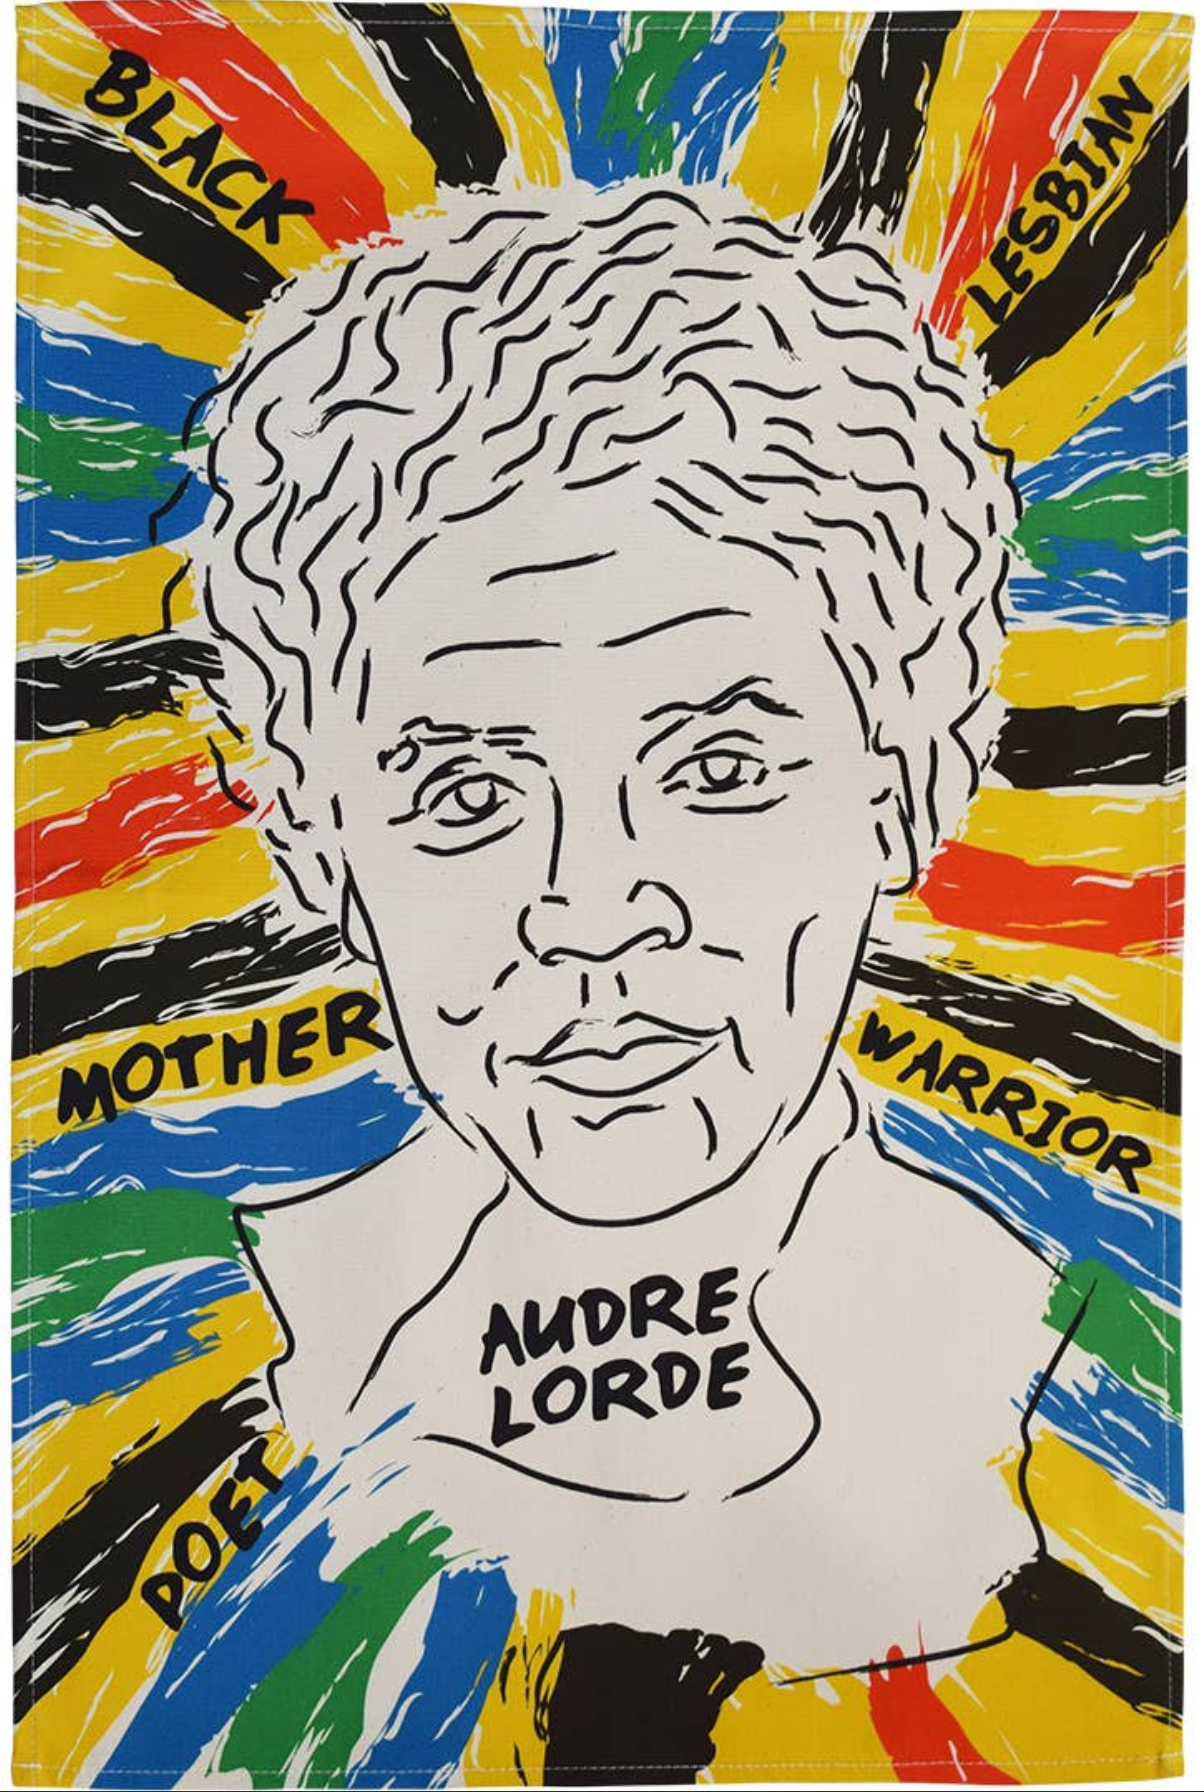 BLACK
LESBIAN
MOTHER
WARRIOR
AUDRE
LORDE
POET